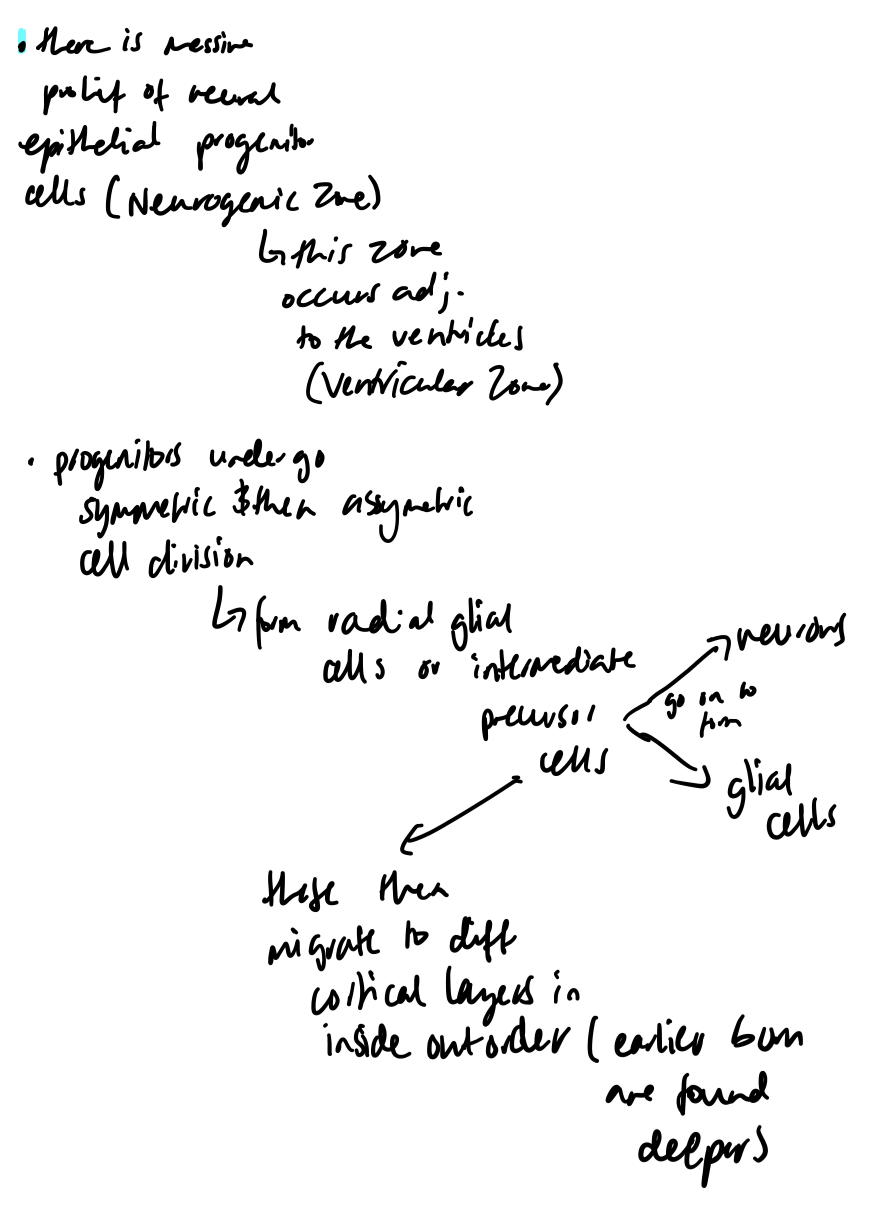 • there is massive
prolif of neural
epithelial progenitor
cells (Neurogenic Zone)
↳ this zone
occurs adj.
to the ventricles
(Ventricular Zone)
• progenitors undergo
symmetric & then assymetric
cell division
↳ form radial glial
cells or intermediate
precursor
cells
go on to
form
neurons
glial
cells
these then
migrate to diff
cortical layers in
inside out order (earlier born
are found
deeper)